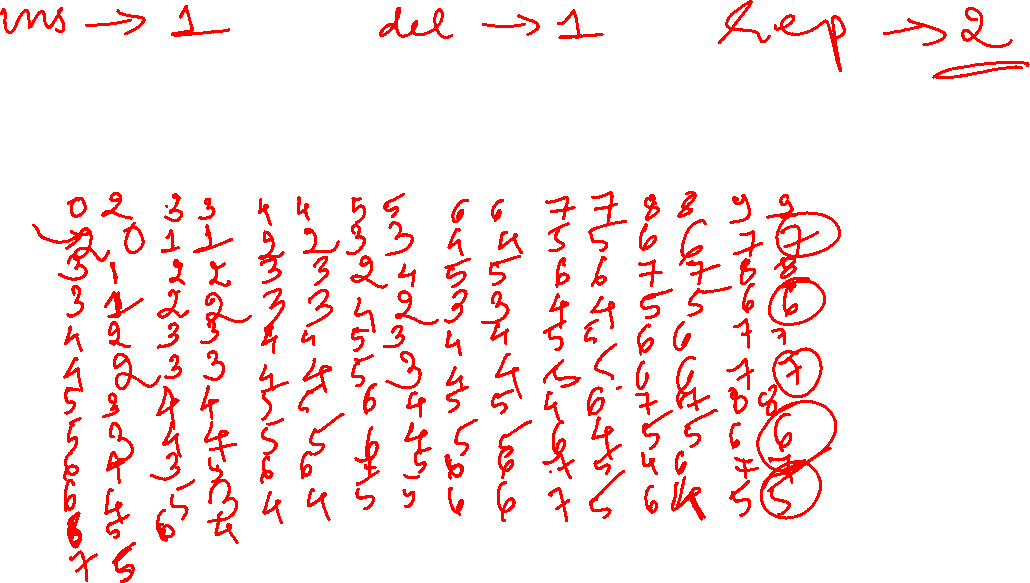 ins → 1 del → 1 Rep → 2
0 2 3 3 4 4 5 5 6 6 7 7 8 8 9 9
2 0 1 1 2 2 3 3 4 4 5 5 6 6 7 7
3 1 2 2 3 3 2 4 5 5 6 6 7 7 8 8
3 1 2 2 3 3 4 2 3 3 4 4 5 5 6 6
4 2 3 3 4 4 5 3 4 4 5 5 6 6 7 7
4 2 3 3 4 4 5 3 4 4 5 5 6 6 7 7
5 3 4 4 5 5 6 4 5 5 4 6 7 7 8 8
5 3 4 4 5 5 6 4 5 5 6 4 5 5 6 6
6 4 3 5 6 6 7 5 6 6 7 5 4 6 7 7
6 4 5 3 4 4 5 5 6 6 7 5 6 4 5 5
6 5 6 4
7 5